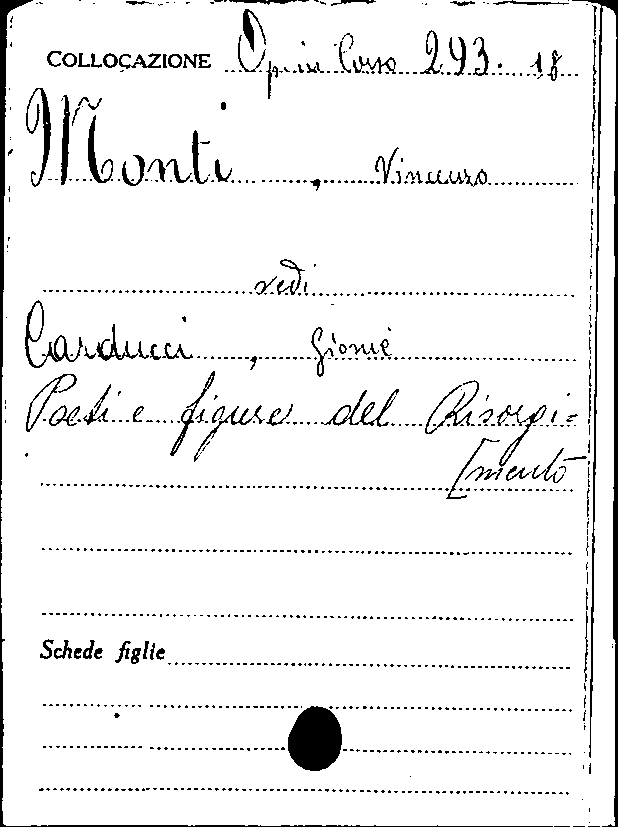 COLLOCAZIONE Opusc. Corso 293. 18
Monti, Vincenzo
vedi
Carducci, Giosuè
Poeti e figure del Risorgi=
[mento
Schede figlie